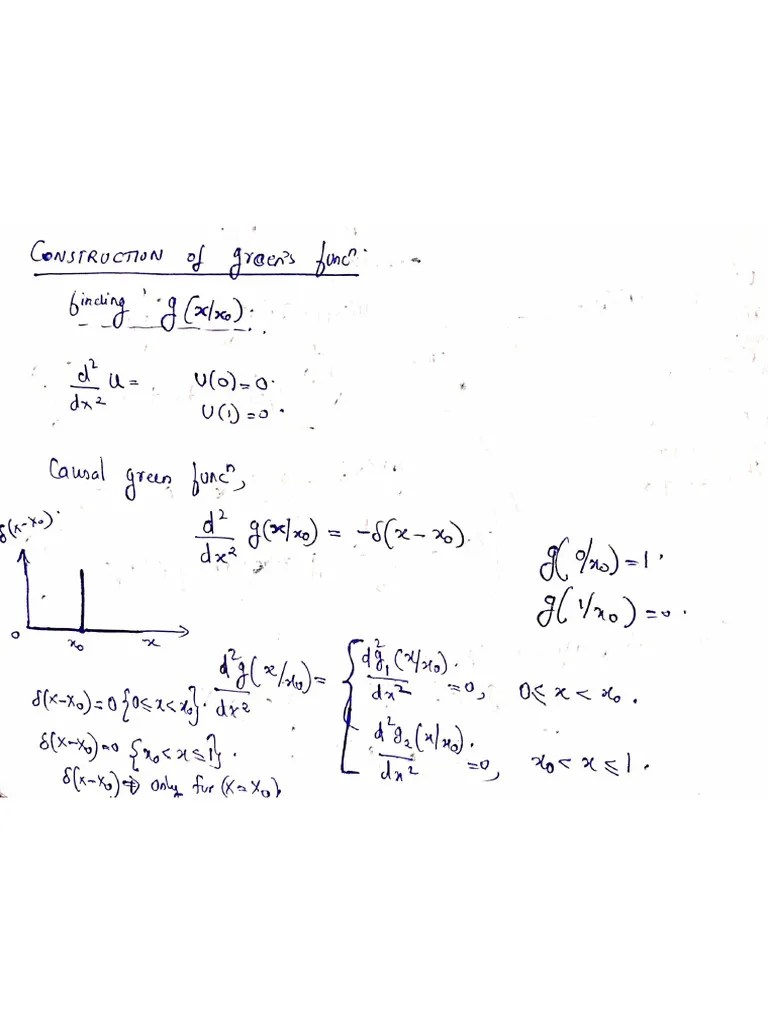 CONSTRUCTION of green's funcⁿ.
finding g(x/x₀).
d²/dx² u = U(0)=0.
U(1)=0.
Causal green funcⁿ,
δ(x-x₀).
d²/dx² g(x/x₀) = -δ(x-x₀).
g(0/x₀)=1.
g(1/x₀)=0.
0 x₀ x
d²g(x/x₀)/dx² = { d²g₁(x/x₀)./dx² =0, 0≤x<x₀.
d²g₂(x/x₀)./dx² =0, x₀<x≤1.
δ(x-x₀)=0 {0≤x<x₀}.
δ(x-x₀)=0 {x₀<x≤1}.
δ(x-x₀)⇒ only for (x=x₀)